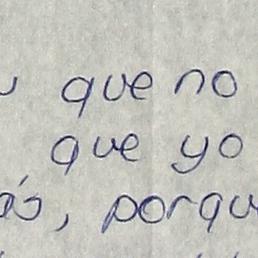 que no
que yo
porqu